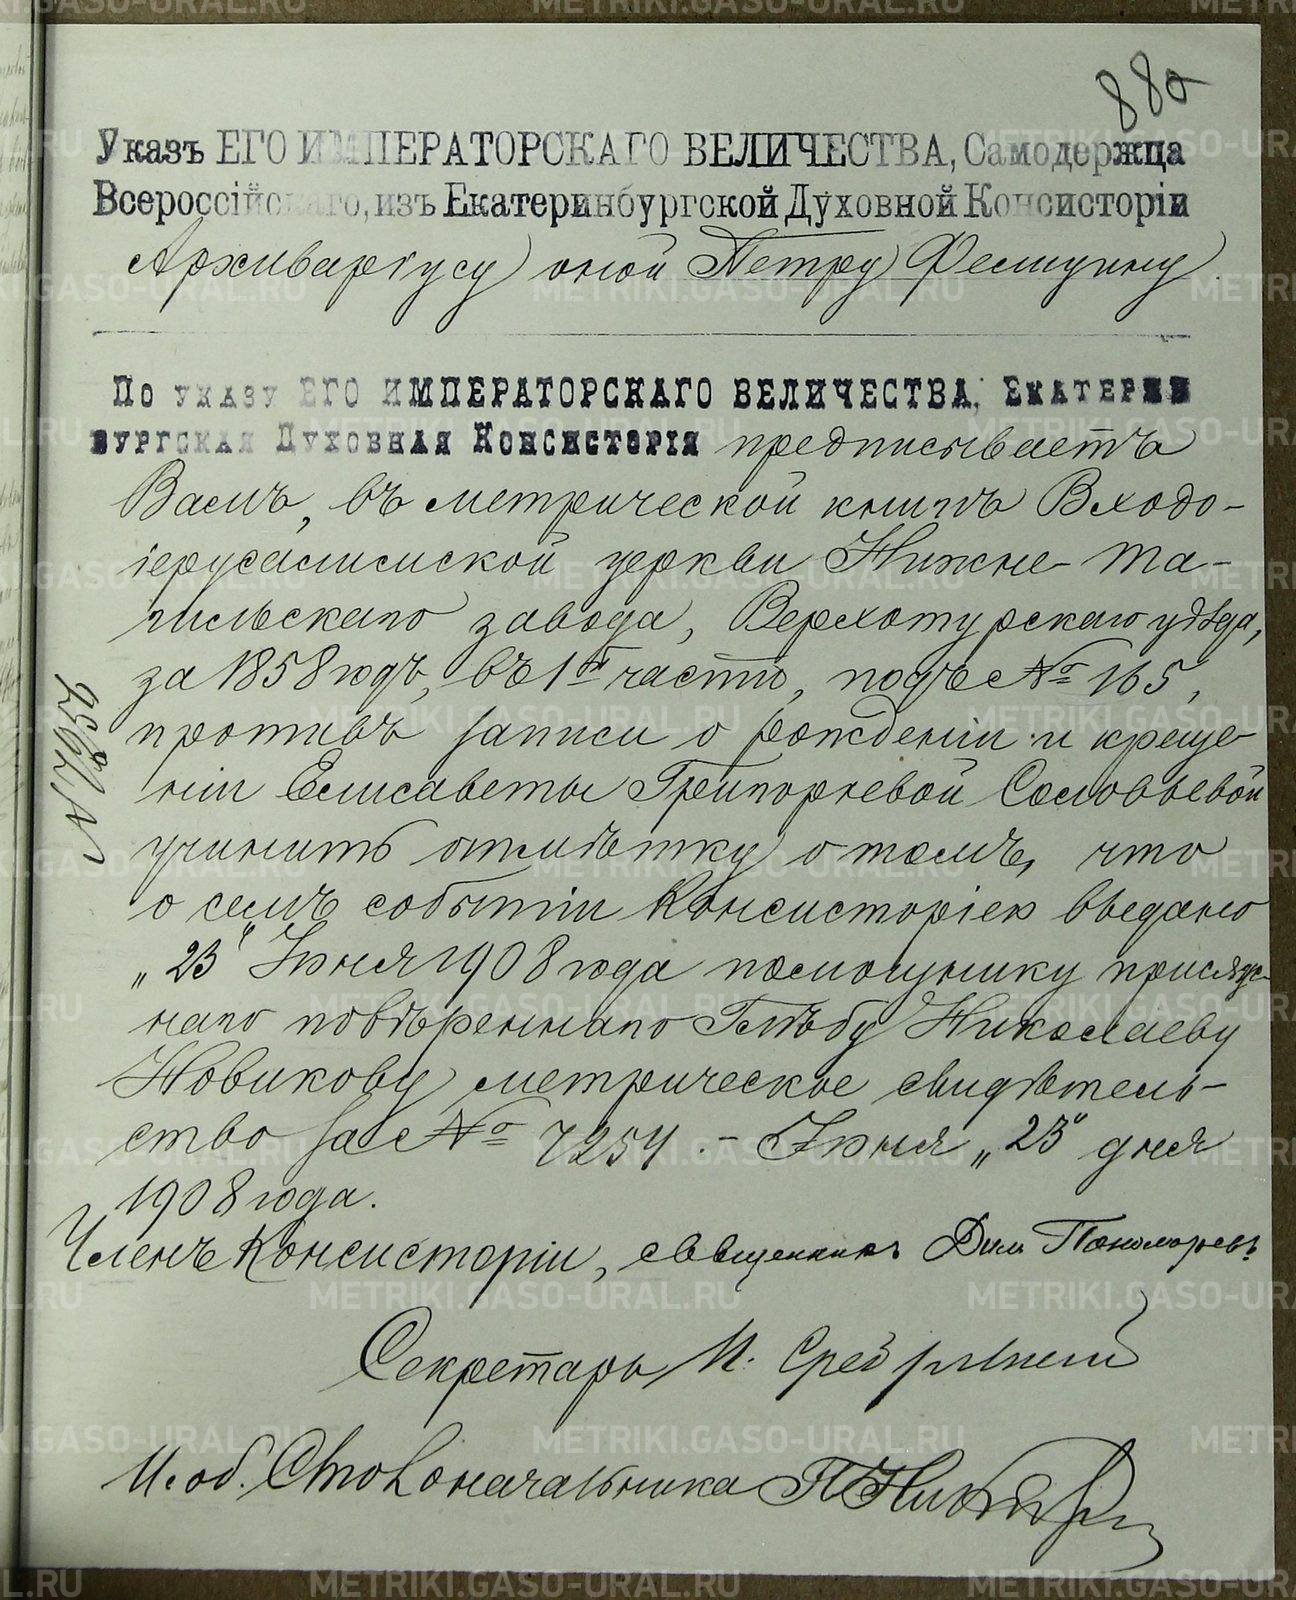 88а
Указъ ЕГО ИМПЕРАТОРСКАГО ВЕЛИЧЕСТВА, Самодержца
Всероссійскаго, изъ Екатеринбургской Духовной Консисторіи
Архиваріусу оной Петру
По указу ЕГО ИМПЕРАТОРСКАГО ВЕЛИЧЕСТВА, Екатерин
бургская Духовная Консисторія предписываетъ
Вамъ, въ метрической книгѣ Входо-
іерусалимской церкви Нижне-Та-
гильскаго завода, Верхотурскаго уѣзда,
за 1858 годъ, въ 1й части, подъ № 165,
противъ записи о рожденіи и креще-
ніи Елисаветы Григорьевой Соловьевой
учинить отмѣтку о томъ, что
о семъ событіи Консисторіею выдано
„23" Іюня 1908 года помощнику присяж-
наго повѣреннаго Глѣбу Николаеву
Новикову метрическое свидѣтель-
ство за № 7254. - Іюня „23" дня
1908 года.
Членъ Консисторіи, священникъ Дим Пономаревъ
Секретарь И.
И. об. Столоначальника П.
METRIKI.GASO-URAL.RU